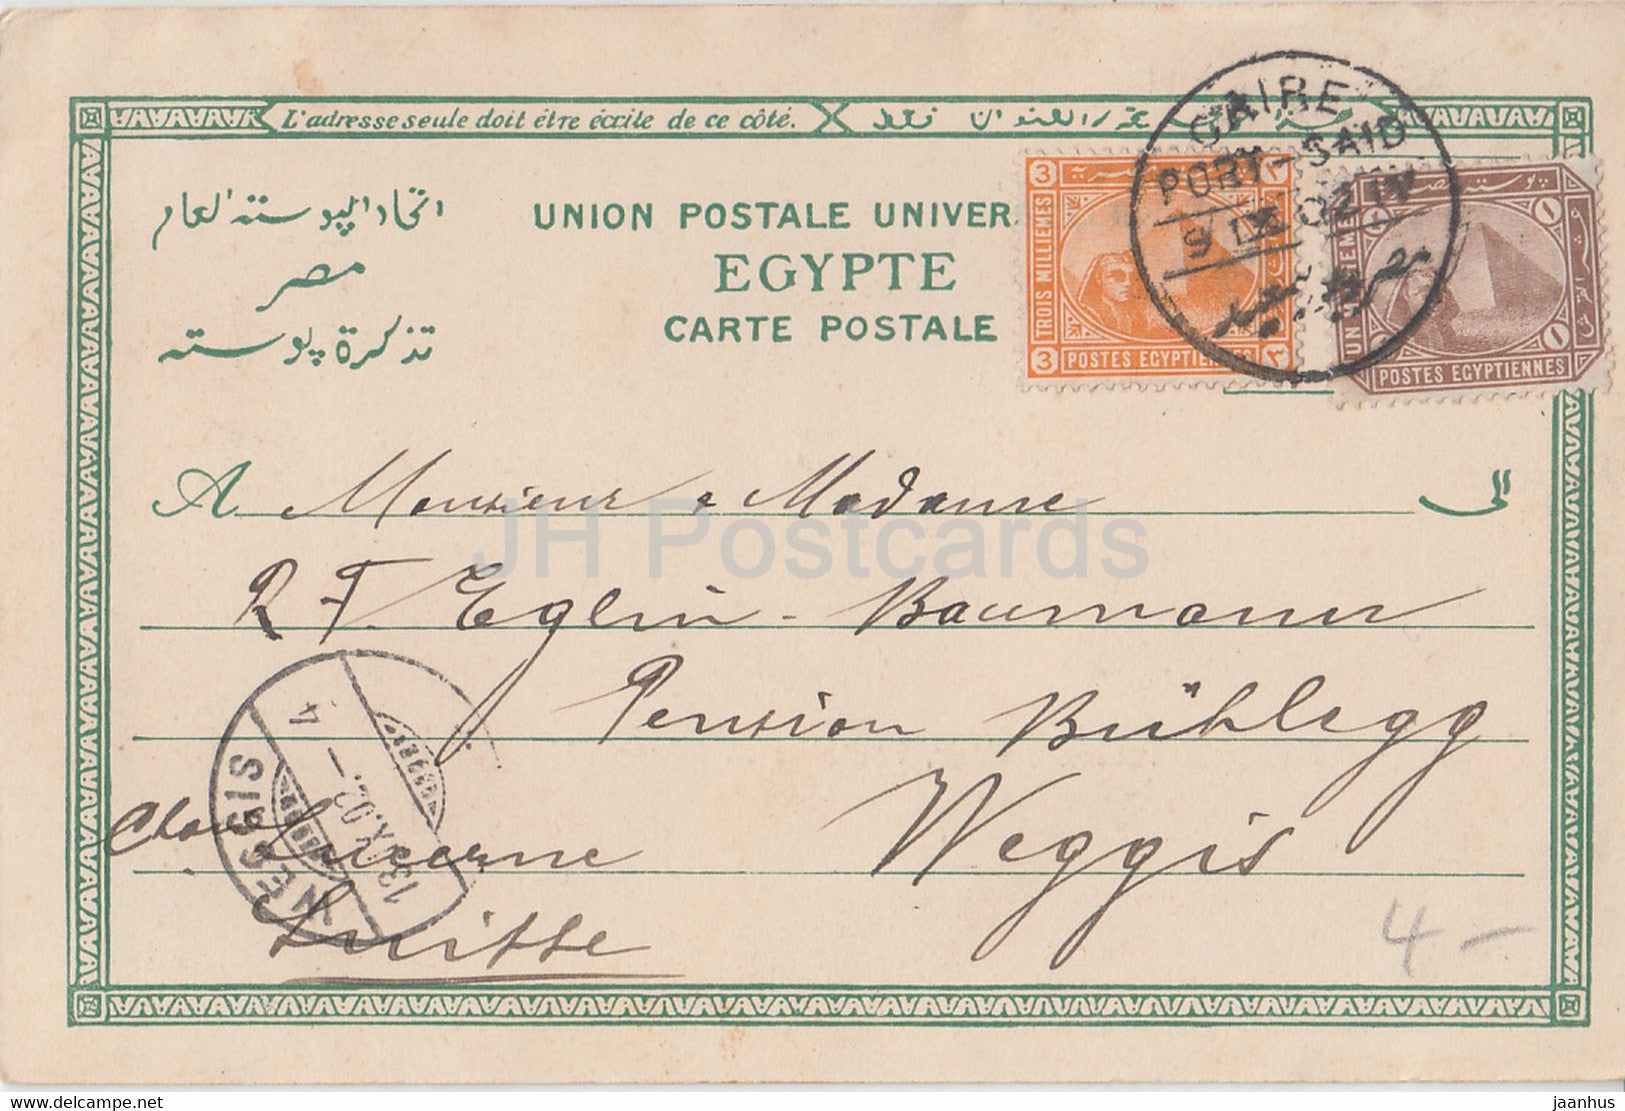 L'adresse seule doit être écrite de ce côté.
اتحاد البوسته العام
UNION POSTALE UNIVER
مصر
EGYPTE
تذكرة بوسته
CARTE POSTALE
CAIRE
PORT-SAID
9 IX 02
3
TROIS MILLIEMES
3
POSTES EGYPTIENNES
POSTES EGYPTIENNES
A Monsieur & Madame
الى
R F. Eglin-Baumann
Pension Bühlegg
Weggis
Lucerne
Suisse
WEGGIS
13.IX.02.
4 -
JH Postcards
www.delcampe.net
jaanhus